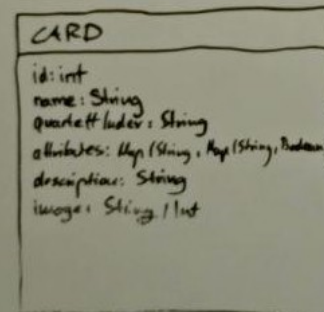 CARD
id: int
name: String
quartettIndex: String
attributes: Map (String, Map (String, Boolean)
description: String
image: String / Int